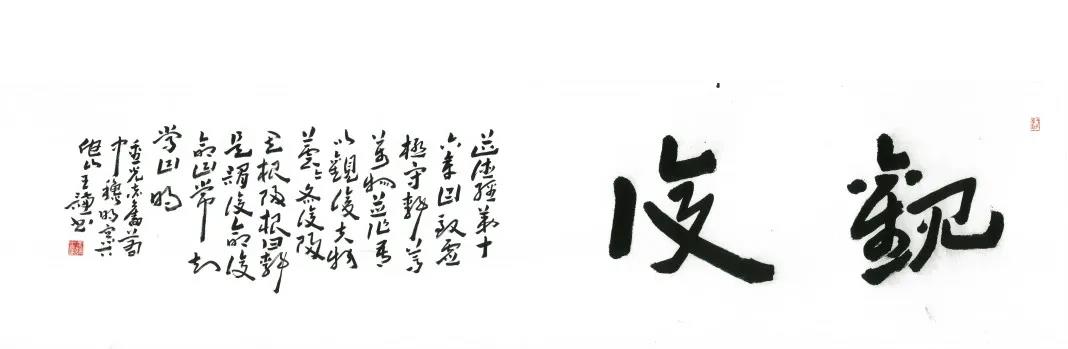 觀復
道德經第十
六章曰致虛
極守靜篤
萬物並作吾
以觀復夫物
芸芸各復歸
其根歸根曰靜
是謂復命復
命曰常知
常曰明
重光赤奮若
中
王謙書